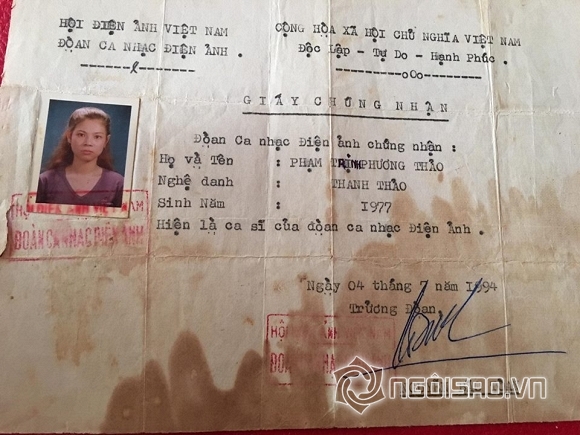 HỘI ĐIỆN ẢNH VIỆT NAM
ĐOÀN CA NHẠC ĐIỆN ẢNH .
CỘNG HÒA XÃ HỘI CHỦ NGHĨA VIỆT NAM
Độc Lập - Tự Do - Hạnh Phúc .
-----l-------
----------oOo----------
GIẤY CHỨNG NHẬN
Đoàn Ca nhạc Điện ảnh chứng nhận :
Họ và Tên : PHẠM TRỊNH PHƯƠNG THẢO
Nghệ danh : THANH THẢO
Sinh Năm : 1977
Hiện là ca sĩ của đoàn ca nhạc Điện Ảnh .
HỘI ĐIỆN ẢNH VIỆT NAM
ĐOÀN CA NHẠC ĐIỆN ẢNH
Ngày 04 tháng 7 năm 1994
Trưởng Đoàn
HỘI ẢNH
ĐOÀN HẠ
NGÔISAO.VN